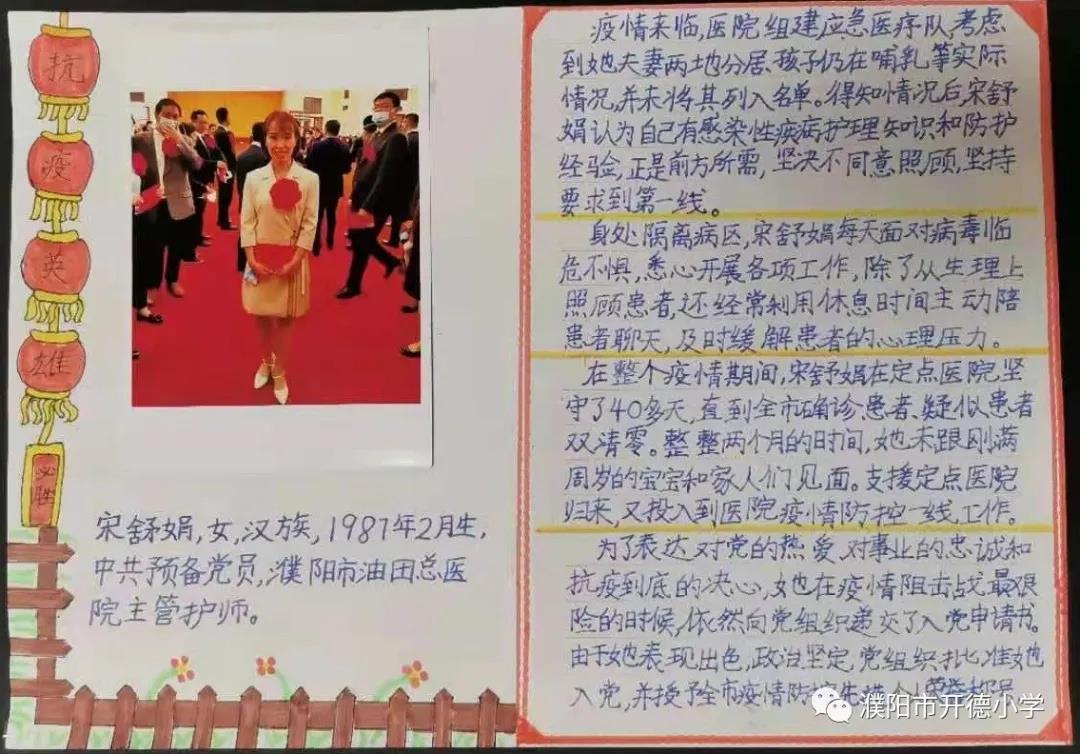 抗
疫
英
雄
必胜
宋舒娟,女,汉族,1987年2月生,
中共预备党员,濮阳市油田总医
院主管护师。
疫情来临,医院组建应急医疗队,考虑
到她夫妻两地分居、孩子仍在哺乳等实际
情况,并未将其列入名单。得知情况后,宋舒
娟认为自己有感染性疾病护理知识和防护
经验,正是前方所需,坚决不同意照顾,坚持
要求到第一线。
身处隔离病区,宋舒娟每天面对病毒临
危不惧,悉心开展各项工作,除了从生理上
照顾患者,还经常利用休息时间主动陪
患者聊天,及时缓解患者的心理压力。
在整个疫情期间,宋舒娟在定点医院坚
守了40多天,直到全市确诊患者、疑似患者
双清零。整整两个月的时间,她未跟刚满
周岁的宝宝和家人们见面。支援定点医院
归来,又投入到医院疫情防控一线工作。
为了表达对党的热爱、对事业的忠诚和
抗疫到底的决心,她也在疫情阻击战最艰
险的时候,依然向党组织递交了入党申请书。
由于她表现出色,政治坚定,党组织批准她
入党,并授予全市疫情防控先进个人荣誉称号
濮阳市开德小学